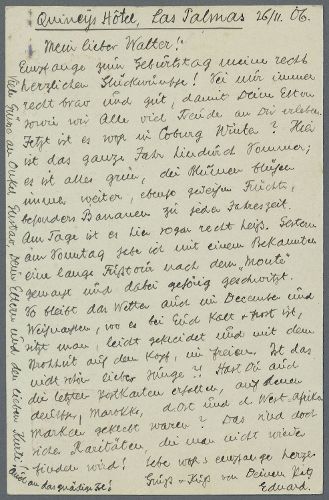 Quincys Hôtel, Las Palmas 26/11. 06.
Mein lieber Walter!
Empfange zum Geburtstag meine recht
herzlichen Glückwünsche! Sei nur immer
recht brav und gut, damit Deine Eltern
sowie wir Alle viel Freude an Dir erleben.
Jetzt ist es wohl in Coburg Winter? Hier
ist das ganze Jahr hindurch Sommer;
es ist alles grün, die Blumen blühen
immer weiter, ebenso Früchte,
besonders Bananen zu jeder Jahreszeit.
Am Tage ist es hier sogar recht heiß. Gestern
am Sonntag habe ich mit einem Bekannten
eine lange Fußtour nach dem "Monte"
gemacht und dabei gehörig geschwitzt.
So bleibt das Wetter auch im December und
Weihnachten, wo es bei Euch kalt + Frost ist,
sitzt man, leicht gekleidet und mit dem
Strohhut auf dem Kopf, im freien. Ist das
nicht schön lieber Junge? Hast Du auch
die letzten Postkarten erhalten, auf denen
deutsche, Marokko, d.Ost und d. West Afrika
Marken geklebt waren? Das sind doch
sicher Raritäten, die man nicht wieder
finden wird! Lebe wohl + empfange herzl.
Gruß + Kuß von Deinem
Eduard.
Viele Grüße an Onkel Gustav, Deine Eltern und den lieben